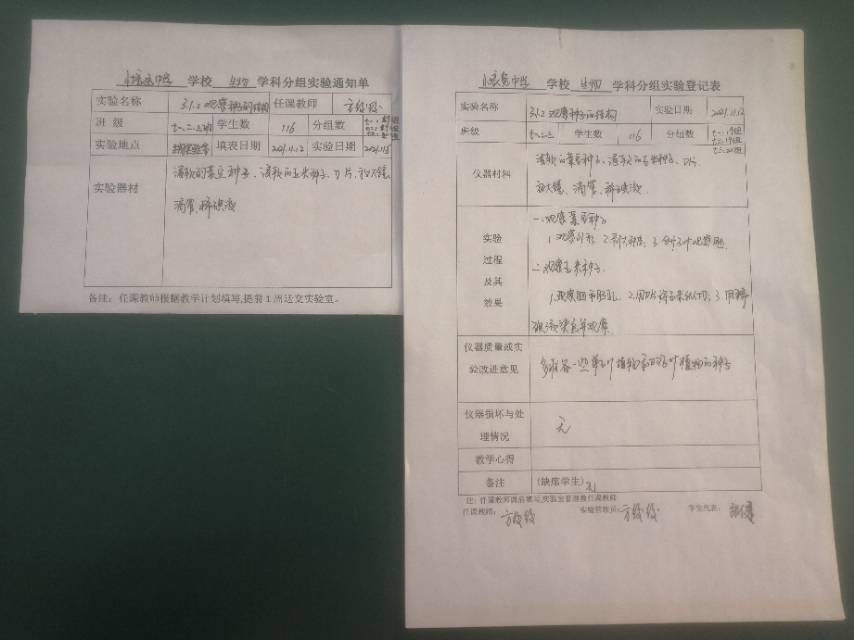 中学 学校 生物 学科分组实验通知单
实验名称 3.1.2 观察种子的结构 任课教师
班级 七一.二.三班 学生数 116 分组数
实验地点 填表日期 2021.11.12 实验日期
实验器材 浸软的菜豆种子、浸软的玉米种子、刀片、放大镜、
滴管、稀碘液
备注：任课教师根据教学计划填写,提前1周送交实验室。
中学 学校 生物 学科分组实验登记表
实验名称 3.1.2 观察种子的结构 实验日期 2021.11.12
班级 七一.二.三 学生数 116 分组数
仪器材料 浸软的菜豆种子、浸软的玉米种子、刀片
放大镜、滴管、稀碘液
实验过程及其效果
一.观察菜豆种子
1.观察外形 2. 3.分开子叶观察胚
二.观察玉米种子
1.观察 2.用刀片将玉米纵切 3.用稀
碘液染色并观察
仪器质量或实验改进意见 多准备一些单子叶植物和双子叶植物的种子
仪器损坏与处理情况 无
教学心得
备注 (缺席学生) 无
注：任课教师课后填写,实验室管理员
任课教师： 实验管理员： 学生代表：